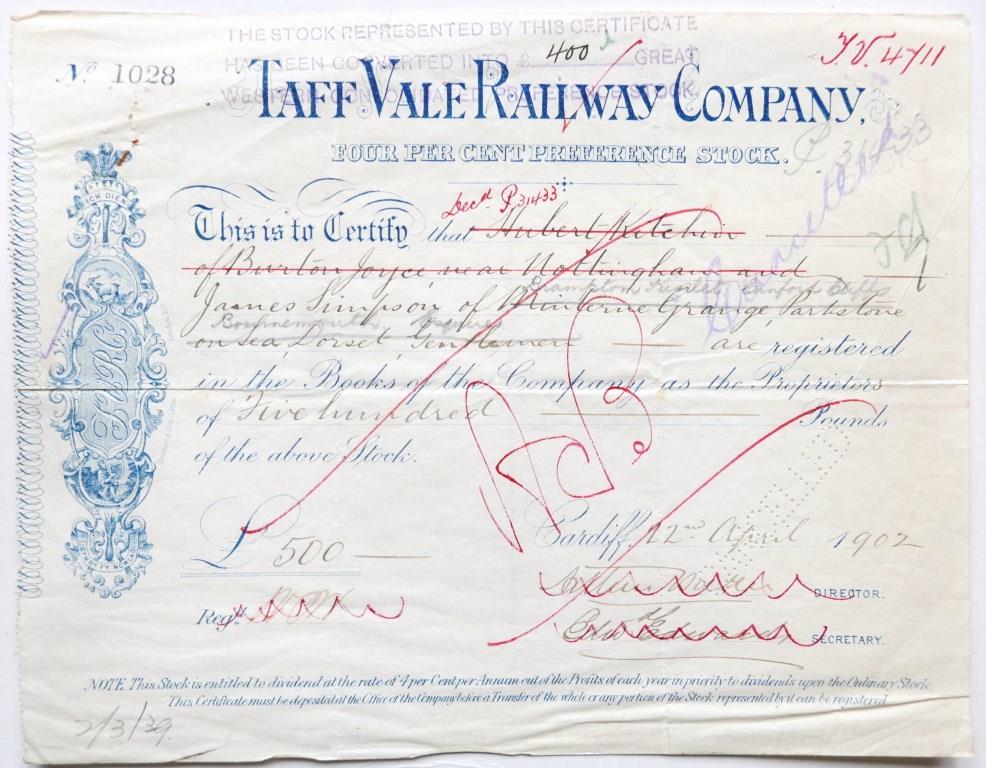 THE STOCK REPRESENTED BY THIS CERTIFICATE
HAS BEEN CONVERTED INTO £ 400 GREAT
WESTERN CONSOLIDATED PREFERENCE STOCK.
T.V. 4711
No 1028
TAFF VALE RAILWAY COMPANY,
FOUR PER CENT PREFERENCE STOCK.
P. 31433
Cancelled
Decd. P. 31433
This is to Certify that Hubert Kitchin
of Burton Joyce near Nottingham and
Canford Cliffs
James Simpson of Minterne Grange, Parkstone
Bournemouth Esquires
on Sea, Dorset, Gentlemen — are registered
in the Books of the Company as the Proprietors
of Five hundred — Pounds
of the above Stock.
ICH DIEN
T.V.R.Co
£ 500 —
Cardiff, 22nd April 1902
DIRECTOR.
Regd.
Edwards
SECRETARY.
NOTE. This Stock is entitled to dividend at the rate of 4 per Cent per Annum out of the Profits of each year in priority to dividends upon the Ordinary Stock.
This Certificate must be deposited at the Office of the Company before a Transfer of the whole or any portion of the Stock represented by it can be registered.
2/3/39.